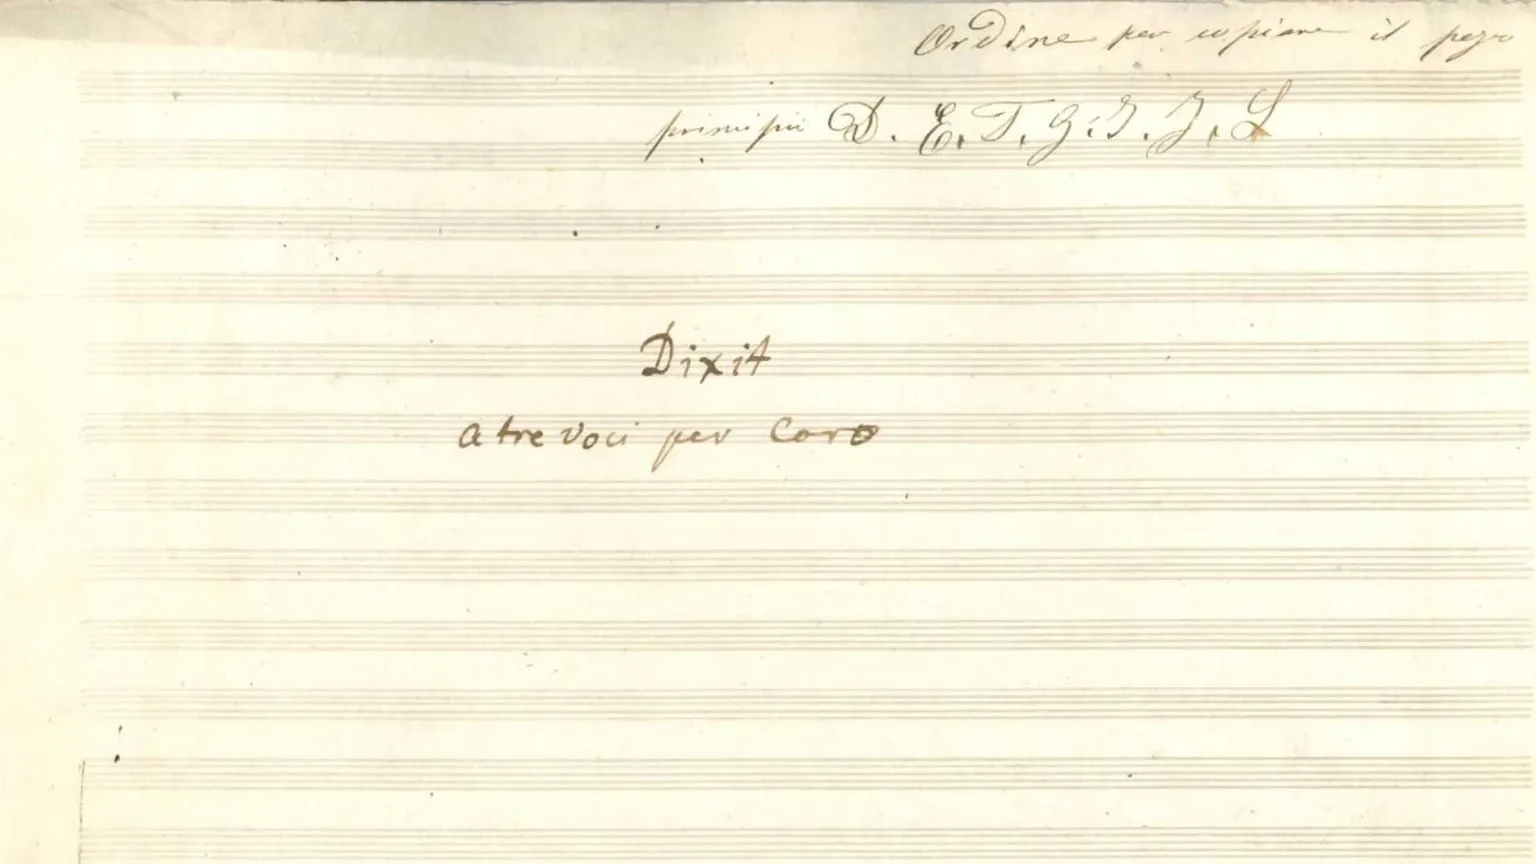 Ordine per copiare il pezzo
principii D. E. T. G. I. J. L
Dixit
a tre voci per Coro